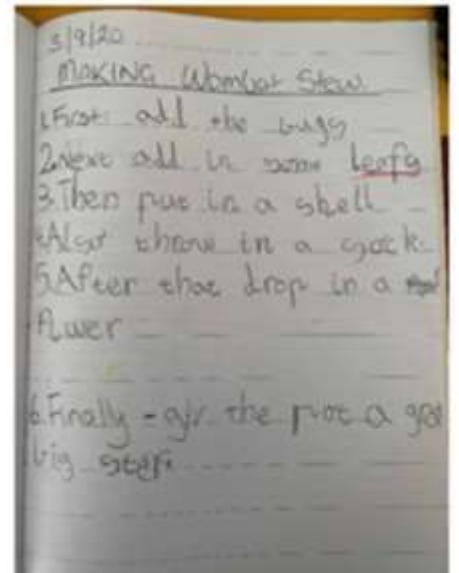 3/9/20
MAKING Wombat Stew
1.First add the bugs
2.Next add in some leafs
3.Then put in a shell
4.Also throw in a
5.After that drop in a
flwer
6.Finally - giv the pot a
big